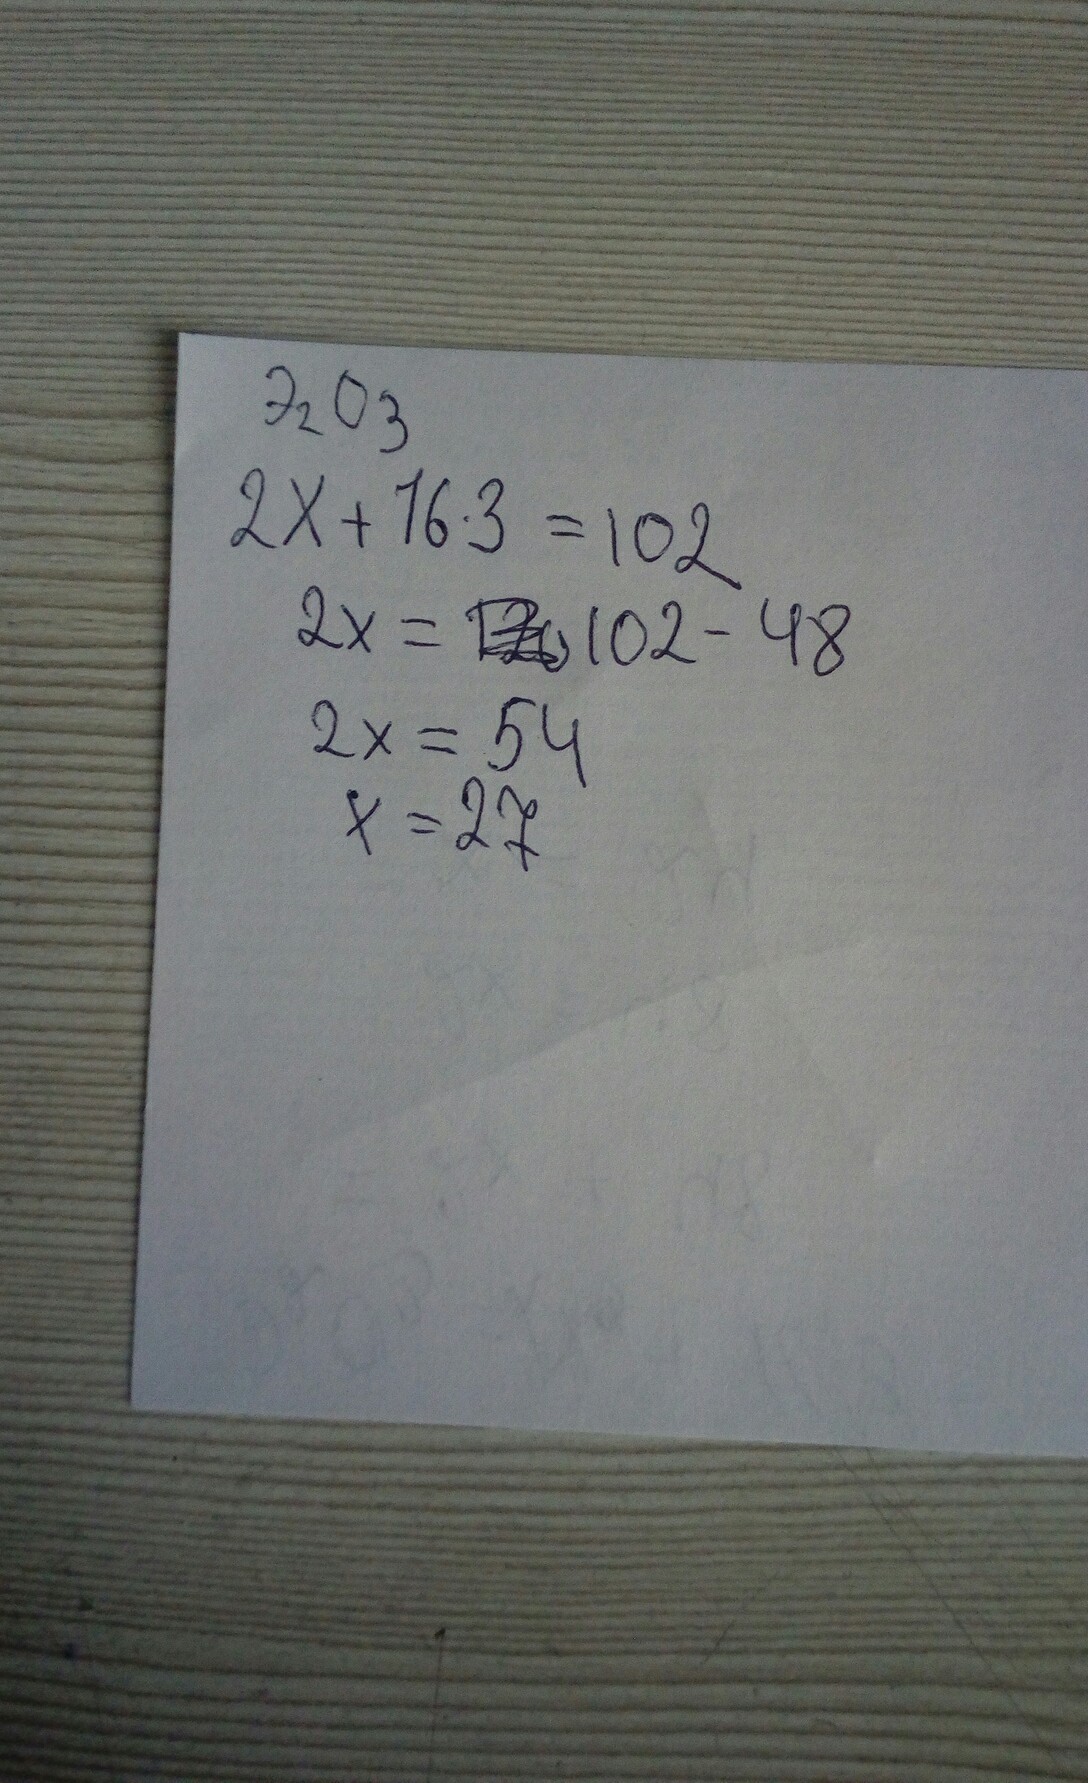 Э₂O₃
2X+16·3=102
2x=102-48
2x=54
x=27